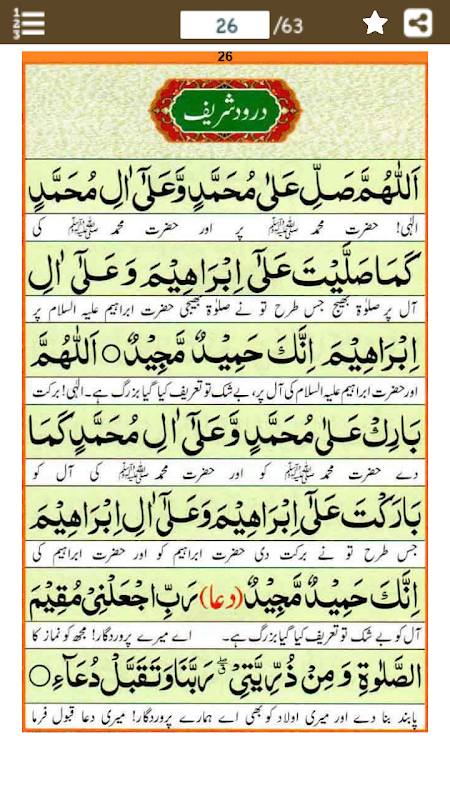 26 /63
26
درود شریف
اَللّٰهُمَّ صَلِّ عَلٰی مُحَمَّدٍ وَّعَلٰۤی اٰلِ مُحَمَّدٍ
الٰہی! حضرت محمد ﷺ پر اور حضرت محمد ﷺ کی
كَمَا صَلَّيْتَ عَلٰۤی اِبْرَاهِيْمَ وَعَلٰۤی اٰلِ
آل پر صلوٰۃ بھیج جس طرح تو نے صلوٰۃ بھیجی حضرت ابراہیم علیہ السلام پر
اِبْرَاهِيْمَ اِنَّكَ حَمِيْدٌ مَّجِيْدٌ○ اَللّٰهُمَّ
اور حضرت ابراہیم علیہ السلام کی آل پر، بے شک تو تعریف کیا گیا بزرگ ہے۔ الٰہی! برکت
بَارِكْ عَلٰی مُحَمَّدٍ وَّعَلٰۤی اٰلِ مُحَمَّدٍ كَمَا
دے حضرت محمد ﷺ کو اور حضرت محمد ﷺ کی آل کو
بَارَكْتَ عَلٰۤی اِبْرَاهِيْمَ وَعَلٰۤی اٰلِ اِبْرَاهِيْمَ
جس طرح تو نے برکت دی حضرت ابراہیم کو اور حضرت ابراہیم کی
اِنَّكَ حَمِيْدٌ مَّجِيْدٌ (دعا) رَبِّ اجْعَلْنِیْ مُقِيْمَ
آل کو بے شک تو تعریف کیا گیا بزرگ ہے۔ اے میرے پروردگار! مجھ کو نماز کا
الصَّلٰوةِ وَمِنْ ذُرِّيَّتِیْ ۖ رَبَّنَا وَتَقَبَّلْ دُعَآءِ○
پابند بنا دے اور میری اولاد کو بھی اے ہمارے پروردگار! میری دعا قبول فرما